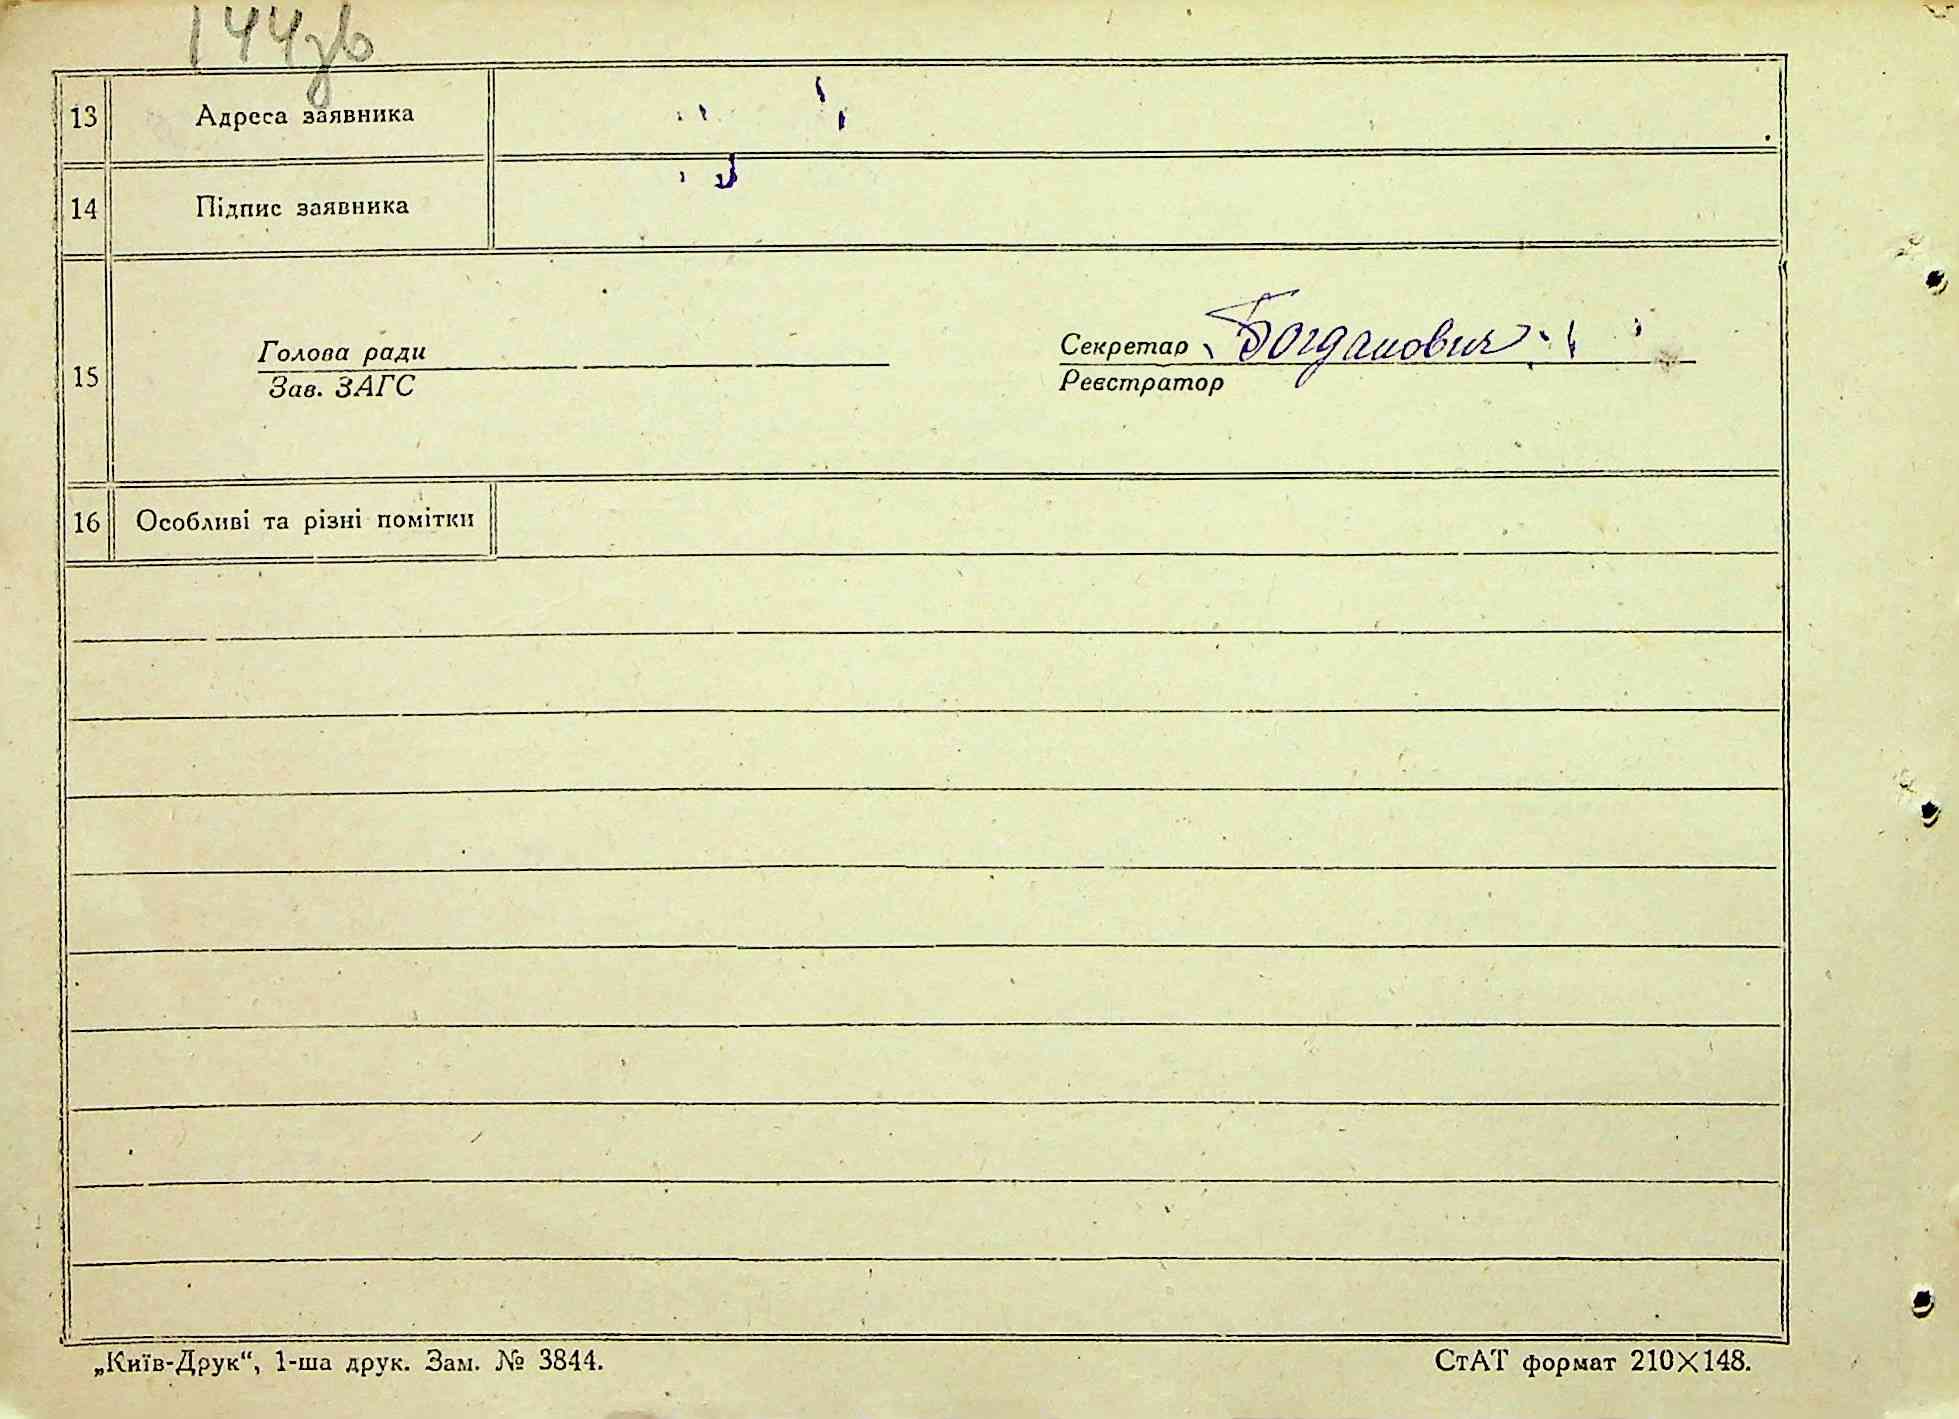 144зв
13 Адреса заявника
14 Підпис заявника
15 Голова ради Секретар Богданович
Зав. ЗАГС Реєстратор
16 Особливі та різні помітки
„Київ-Друк“, 1-ша друк. Зам. № 3844. СтАТ формат 210×148.